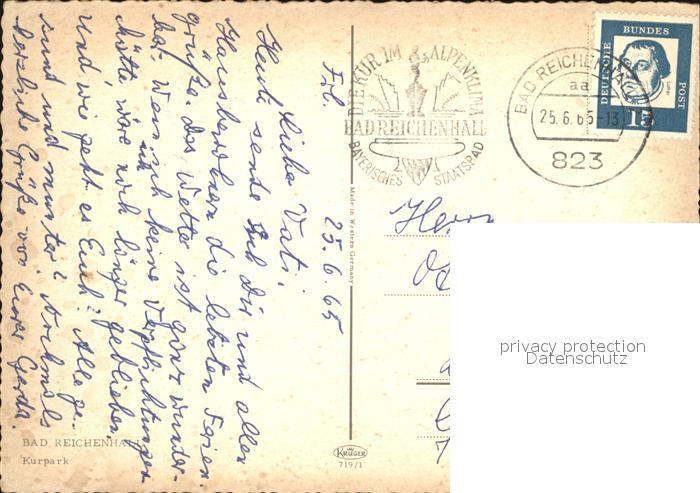 Frl. 25.6.65
Liebe Vati!
Heute sende ich Dir und allen
Hausbewohnern die letzten Ferien
grüße. Das Wetter ist ganz wunder-
bar. Wenn ich keine Verpflichtungen
hätte, wäre ich noch länger geblieben.
Und wie geht es Euch? Alle ge-
sund und munter? Nochmals
herzliche Grüße von Eurer Gerda.
DIE KUR IM ALPENKLIMA
BAD REICHENHALL
BAYERISCHES STAATSBAD
BAD REICHENHALL
aa
25.6.65-13
823
DEUTSCHE BUNDES POST
15
Made in Western Germany
Herrn
privacy protection
Datenschutz
BAD REICHENHALL
Kurpark
KRÜGER
719/1